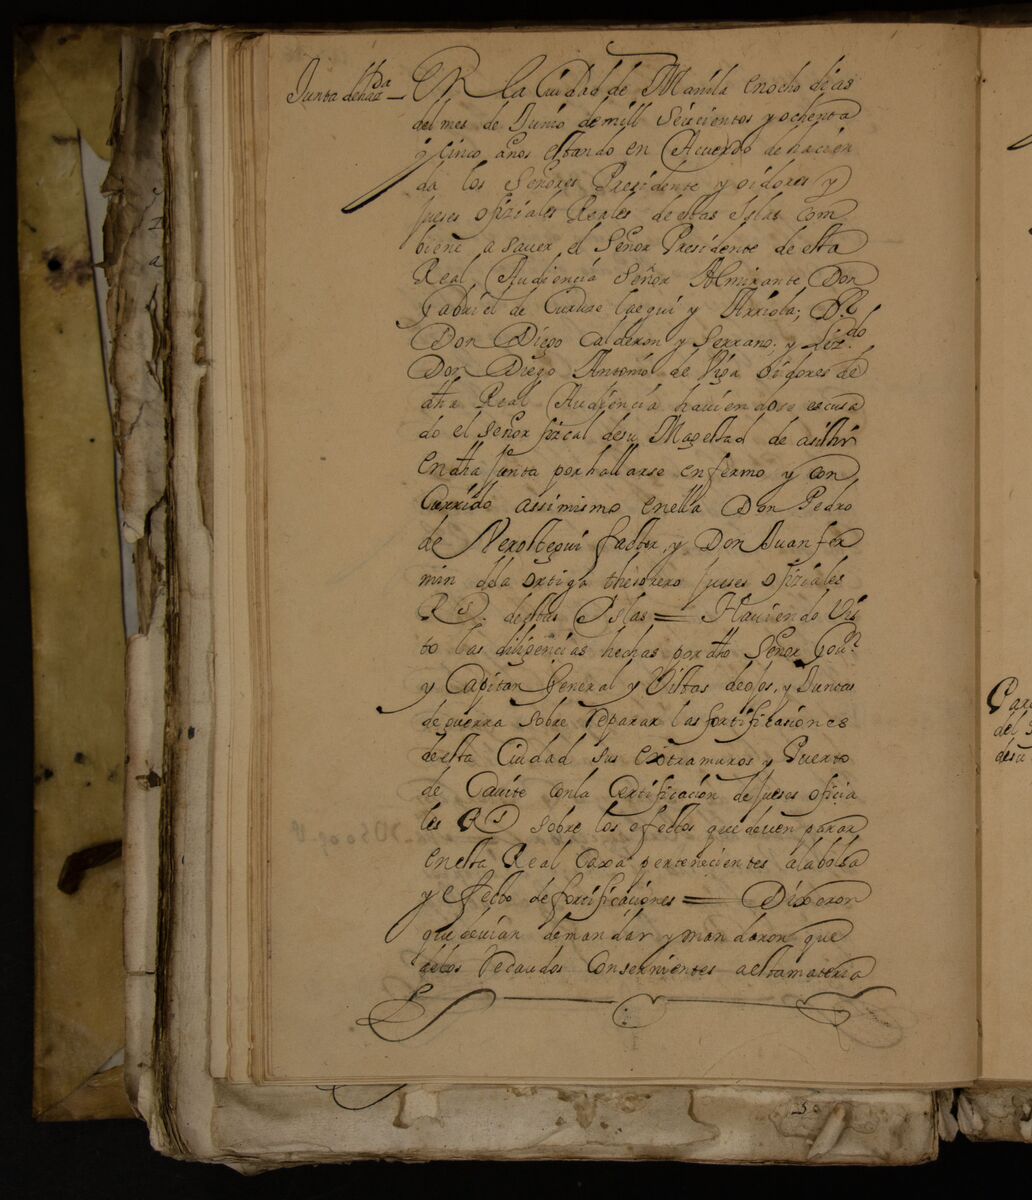 Junta de haz.da
En la Ciudad de Manila en ocho dias
del mes de Junio de mill seiscientos y ochenta
y cinco años estando en Acuerdo de hacien
da los Señores Presidente y oidores y
jueses ofiziales Reales de estas Islas com
biene a saver el Señor Presidente de esta
Real Audiencia Señor Almirante Don
Gabriel de Curuse laegui y Arriola; D.or
Don Diego Calderon y Serrano; y Liz.do
Don Diego Antonio de Viga oidores de
dha Real Audiencia haviendose escusa
do el Señor fiscal de su Magestad de asistir
en dha Junta por hallarse enfermo y con
Currido assimismo en ella Don Pedro
de Verostegui factor, y Don Juan fer
min dela ortiga thesorero jueses ofiziales
R.s destas Islas = Haviendo Vis
to las diligencias hechas por dho Señor Gou.or
y Capitan General y Vistas de ojos, y Juntas
de guerra sobre reparar las fortificasiones
de esta Ciudad sus extramuros y Puerto
de Cavite con la Certificacion de jueses oficia
les R.s sobre los efectos que deven parar
en esta Real Caxa pertenecientes a la bolsa
y efecto de fortificaciones = Dixeron
que devian de mandar y mandaron que
los recaudos Consernientes a esta materia
Para
del S
desu